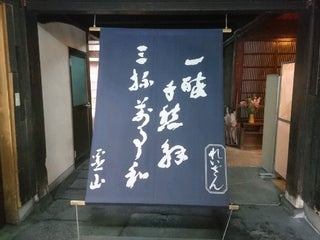 一酔
千愁解
三杯萬事和
霊山
れいざん